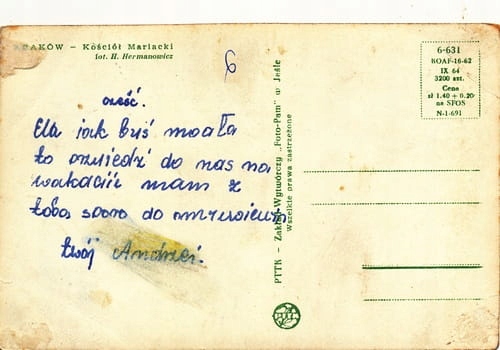 KRAKÓW – Kościół Mariacki
fot. H. Hermanowicz
6
cześć.
Ela jak byś moała
to przyjedź do nas na
wakacije mam z
tobą sporo do omuwienia
twój Andrzei.
PTTK – Zakład Wytwórczy „Foto-Pam” w Jaśle
Wszelkie prawa zastrzeżone
6-631
BOAF-16-62
IX 64
3200 szt.
Cena
zł 1.40 + 0.20
na SFOS
N-1-691
PTTK